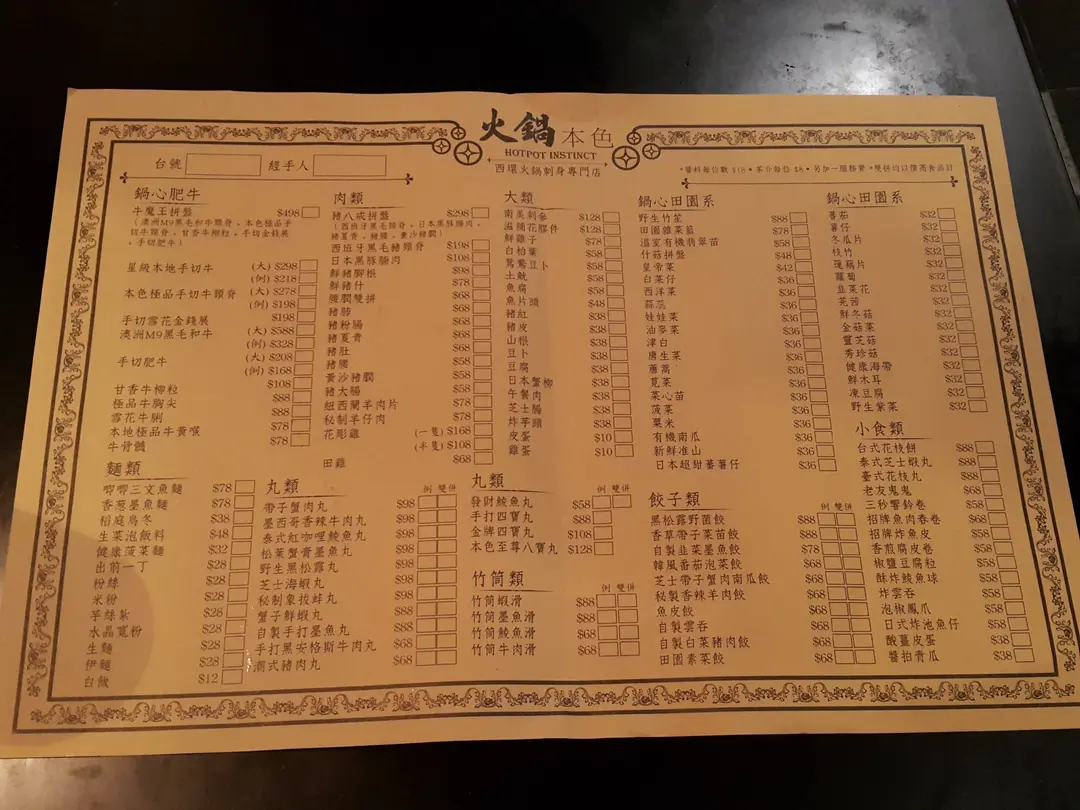 火鍋本色
HOTPOT INSTINCT
西環火鍋刺身專門店
台號 經手人
*醬料每位數 $18 * 茶介每位 $8 * 另加一服務費 *雙拼均以價高食品計
鍋心肥牛
牛魔王拼盤 $498
(澳洲M9黑毛和牛頸脊,本色極品手
切牛頸脊,甘香牛柳粒,手切金錢展
,手切肥牛)
星級本地手切牛 (大) $298
(例) $218
本色極品手切牛頸脊 (大) $278
(例) $198
手切雪花金錢展 $198
澳洲M9黑毛和牛 (大) $588
(例) $328
手切肥牛 (大) $208
(例) $168
甘香牛柳粒 $108
極品牛胸尖 $88
雪花牛脷 $88
本地極品牛黃喉 $78
牛骨髓 $78
麵類
唧唧三文魚麵 $78
香葱墨魚麵 $78
稻庭烏冬 $38
生菜泡飯料 $48
健康菠菜麵 $32
出前一丁 $28
粉絲 $28
米粉 $28
芋絲紮 $28
水晶寬粉 $28
生麵 $28
伊麵 $28
白飯 $12
肉類
豬八戒拼盤 $298
西班牙黑毛豬頸脊 $198
日本黑豚腸肉 $108
鮮豬腳根 $98
鮮豬什 $78
腰膶雙拼 $68
豬肺 $68
豬粉腸 $68
豬夏青 $68
豬肚 $58
豬腰 $58
黃沙豬膶 $58
豬大腸 $58
紐西蘭羊肉片 $78
秘制羊仔肉 $78
花彫雞 (一隻) $168
(半隻) $108
田雞 $68
丸類
例 雙拼
帶子蟹肉丸 $98
墨西哥香辣牛肉丸 $98
泰式紅咖哩鯪魚丸 $98
松葉蟹膏墨魚丸 $98
野生黑松露丸 $98
芝士海蝦丸 $98
秘制象拔蚌丸 $98
蟹子鮮蝦丸 $98
自製手打墨魚丸 $88
手打黑安格斯牛肉丸 $68
潮式豬肉丸 $68
大類
南美刺參 $128
滋補花膠件 $128
鮮雞子 $78
白柏葉 $58
鴛鴦豆卜 $58
土魷 $58
魚腐 $58
魚片頭 $48
豬紅 $38
豬皮 $38
山根 $38
豆卜 $38
豆腐 $38
日本蟹柳 $38
午餐肉 $38
芝士腸 $38
炸芋頭 $38
皮蛋 $10
雞蛋 $10
丸類
例 雙拼
發財鯪魚丸 $58
手打四寶丸 $88
金牌四寶丸 $108
本色至尊八寶丸 $128
竹筒類
例 雙拼
竹筒蝦滑 $88
竹筒墨魚滑 $88
竹筒鯪魚滑 $68
竹筒牛肉滑 $68
鍋心田園系
野生竹笙 $88
田園雜菜籃 $78
溫室有機翡翠苗 $58
什菇拼盤 $48
皇帝菜 $42
白菜仔 $36
西洋菜 $36
茼蒿 $36
娃娃菜 $36
油麥菜 $36
津白 $36
唐生菜 $36
蕭蒿 $36
莧菜 $36
菜心苗 $36
菠菜 $36
粟米 $36
有機南瓜 $36
新鮮淮山 $36
日本超甜蕃薯仔 $36
餃子類
例 雙拼
黑松露野菌餃 $88
香草帶子菜苗餃 $88
自製韭菜墨魚餃 $78
韓風番茄泡菜餃 $68
芝士帶子蟹肉南瓜餃 $68
秘製香辣羊肉餃 $68
魚皮餃 $68
自製雲吞 $68
自製白菜豬肉餃 $68
田園素菜餃 $68
鍋心田園系
蕃茄 $32
薯仔 $32
冬瓜片 $32
枝竹 $32
蓮藕片 $32
蘿蔔 $32
韭菜花 $32
芫茜 $32
鮮冬菇 $32
金菇菜 $32
靈芝菇 $32
秀珍菇 $32
健康海帶 $32
鮮木耳 $32
凍豆腐 $32
野生紫菜 $32
小食類
台式花枝餅 $88
泰式芝士蝦丸 $88
臺式花枝丸 $88
老友鬼鬼 $68
三秒響鈴卷 $58
招牌魚肉春卷 $68
招牌炸魚皮 $58
香煎腐皮卷 $58
椒鹽豆腐粒 $58
酥炸鯪魚球 $58
炸雲吞 $58
泡椒鳳爪 $58
日式炸池魚仔 $58
酸薑皮蛋 $38
醬拍青瓜 $38